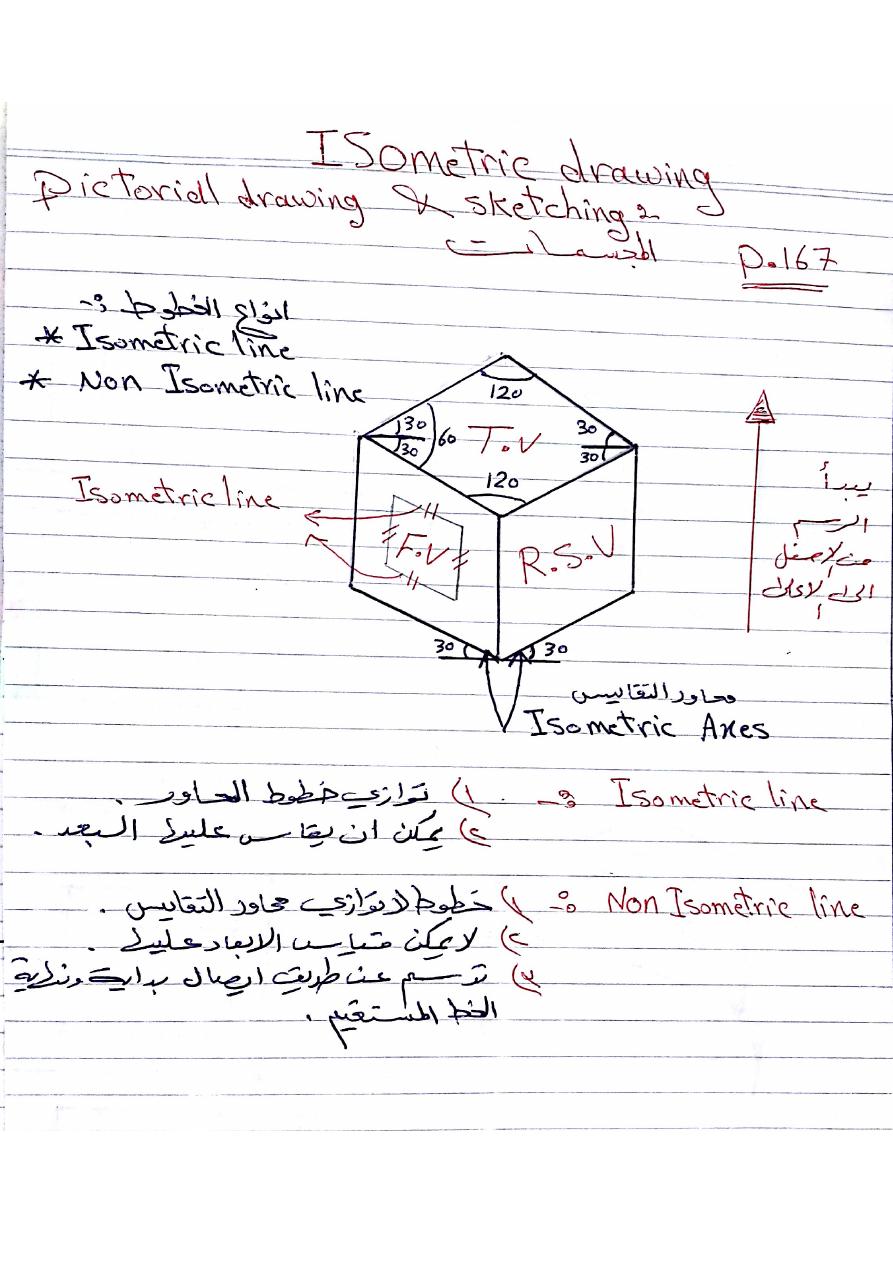 ISometric drawing
Pictoriall drawing & sketching 2
المجسمات
P.167
انواع الخطوط :-
* Isometric line
* Non Isometric line
120
30
30
60
T.V
30
30
120
Isometric line
F.V
R.S.V
يبدأ
الرسم
من الاسفل
الى الاعلى
30
30
محاور التقاييس
Isometric Axes
Isometric line :- ١) توازي خطوط المحاور .
٢) يمكن ان يقاس عليها البعد .
Non Isometric line :- ١) خطوط لا توازي محاور التقاييس .
٢) لا يمكن قياس الابعاد عليها .
٣) ترسم عن طريق ايصال بداية ونهاية
الخط المستقيم .